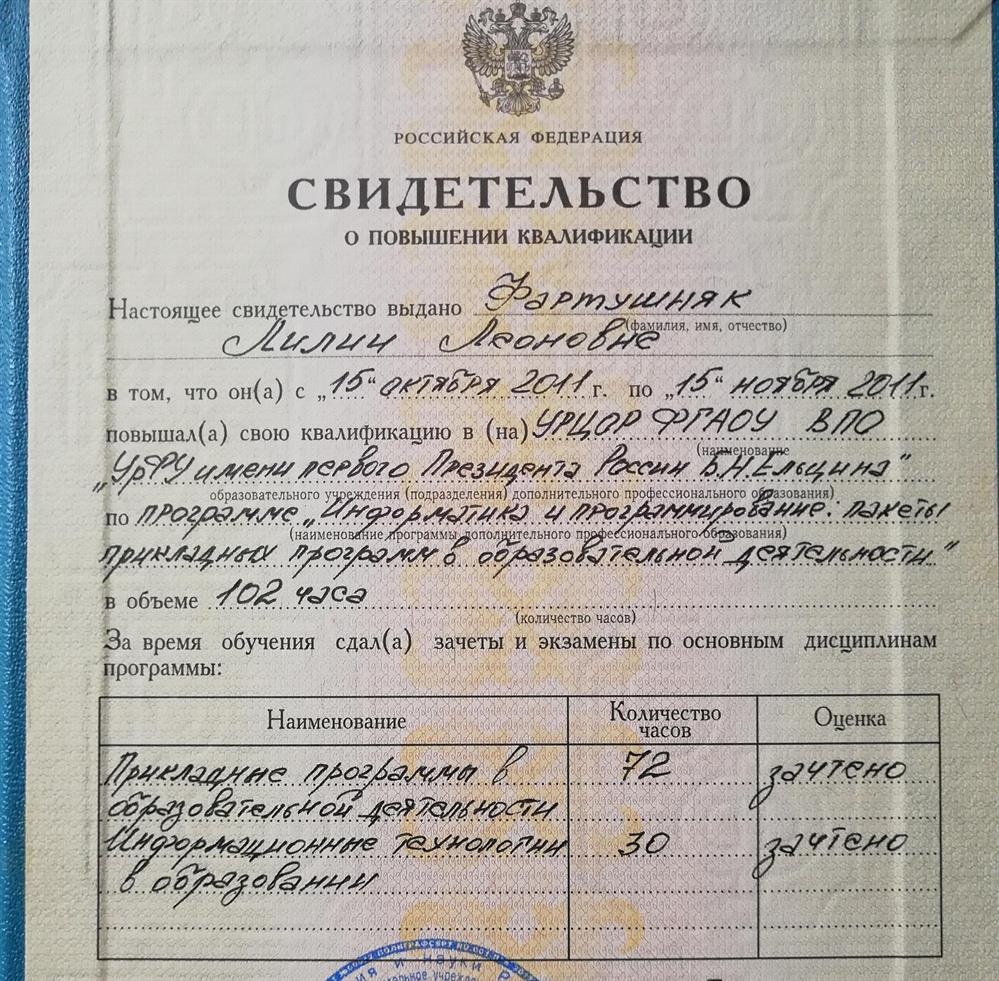 РОССИЙСКАЯ ФЕДЕРАЦИЯ
СВИДЕТЕЛЬСТВО
О ПОВЫШЕНИИ КВАЛИФИКАЦИИ
Настоящее свидетельство выдано Фартушняк
(фамилия, имя, отчество)
Лилии Леоновне
в том, что он(а) с „15“ октября 2011 г. по „15“ ноября 2011 г.
повышал(а) свою квалификацию в (на) УРЦОР ФГАОУ ВПО
(наименование
„УрФУ имени первого Президента России Б.Н.Ельцина"
образовательного учреждения (подразделения) дополнительного профессионального образования)
по программе „Информатика и программирование: пакеты
(наименование программы дополнительного профессионального образования)
прикладных программ в образовательной деятельности"
в объеме 102 часа
(количество часов)
За время обучения сдал(а) зачеты и экзамены по основным дисциплинам
программы:
Наименование Количество часов Оценка
Прикладные программы в 72 зачтено
образовательной деятельности
Информационные технологии 30 зачтено
в образовании
и науки